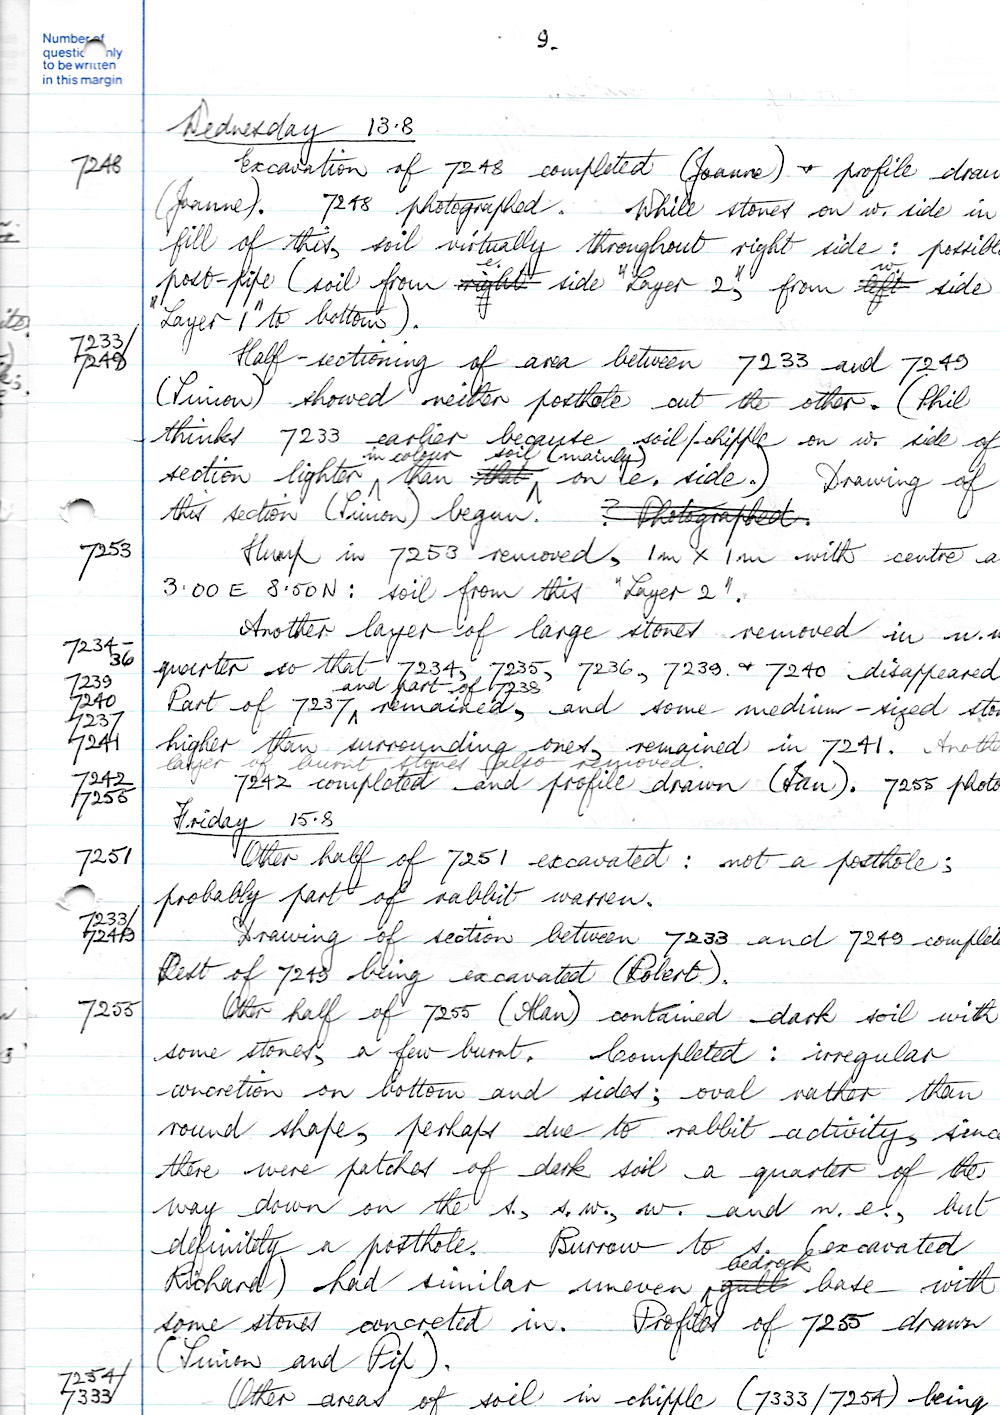 9.
Number of
questio nly
to be written
in this margin
Wednesday 13.8
7248 Excavation of 7248 completed (Joanne) & profile draw
(Joanne). 7248 photographed. While stones on w. side in
fill of this, soil virtually throughout right side : possible
e. w.
post-pipe (soil from right side "Layer 2", from left side
"Layer 1" to bottom).
7233/
7249 Half-sectioning of area between 7233 and 7249
(Simon) showed neither posthole cut the other. (Phil
thinks 7233 earlier because soil/chipple on w. side of
in colour soil (mainly)
section lighter than that on e. side.) Drawing of
this section (Simon) begun. ? Photographed.
7253 Hump in 7253 removed, 1m x 1m with centre a
3.00 E 8.50N : soil from this "Layer 2".
Another layer of large stones removed in n.w
7234-
36 quarter so that 7234, 7235, 7236, 7239 & 7240 disappeared
7239 and part of 7238
7240 Part of 7237 remained, and some medium-sized sto
7237
7241 higher than surrounding ones, remained in 7241. Anothe
layer of burnt stones also removed.
7242 7242 completed and profile drawn (Ian). 7255 photo
7255
Friday 15.8
7251 Other half of 7251 excavated : not a posthole;
probably part of rabbit warren.
7233/
7249 Drawing of section between 7233 and 7249 complete
Rest of 7249 being excavated (Robert).
7255 Other half of 7255 (Alan) contained dark soil with
some stones, a few burnt. Completed : irregular
concretion on bottom and sides; oval rather than
round shape, perhaps due to rabbit activity, since
there were patches of dark soil a quarter of the
way down on the s., s.w., w. and n.e., but
definitely a posthole. Burrow to s. (excavated
bedrock
Richard) had similar uneven gull base with
some stones concreted in. Profiles of 7255 drawn
(Simon and Pip).
7254/
7333 Other areas of soil in chipple (7333/7254) being